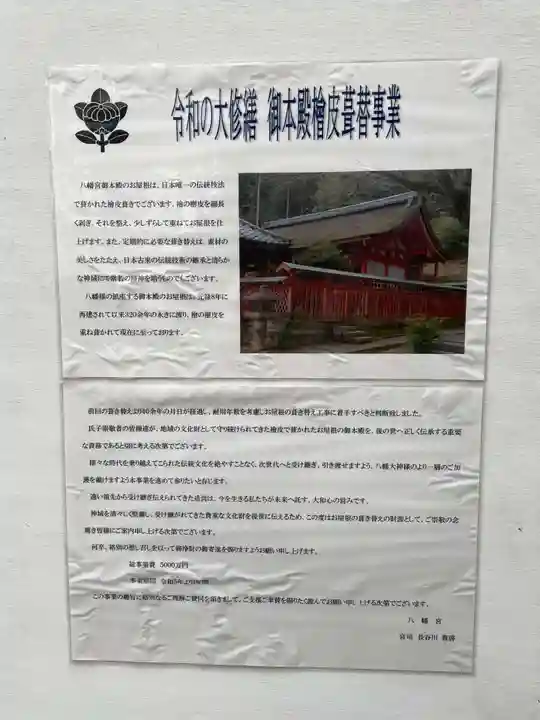 令和の大修繕 御本殿檜皮葺替事業
八幡宮御本殿のお屋根は、日本唯一の伝統技法
で葺かれた檜皮葺きでございます。檜の樹皮を細長
く剥ぎ、それを整え、少しずらして重ねてお屋根を仕
上げます。また、定期的に必要な葺き替えは、素材の
美しさをたたえ、日本古来の伝統技術の継承と清らか
な神域に
八幡様の鎮座する御本殿のお屋根は、元禄8年に
再建されて以来320余年の永きに渡り、檜の樹皮を
重ね葺かれて現在に至っております。
前回の葺き替えより40余年の月日が経過し、耐用年数を考慮しお屋根の葺き替え工事に着手すべきと判断致しました。
氏子崇敬者の皆様達が、地域の文化財として守り続けられてきた檜皮で葺かれたお屋根の御本殿を、後の世へ正しく伝承する重要
な責務であると切に考える次第でございます。
様々な時代を乗り越えてこられた伝統文化を絶やすことなく、次世代へと受け継ぎ、引き渡せますよう、八幡大神様のより一層のご加
護を戴けますよう本事業を進めて参りたいと存じます。
遠い祖先から受け継ぎ伝えられてきた遺訓は、今を生きる私たちが未来へ託す、大和心の営みです。
神域を清々しく整備し、受け継がれてきた貴重な文化財を後世に伝えるため、この度はお屋根の葺き替えの財源として、ご崇敬の念
篤き皆様にご案内申し上げる次第でございます。
何卒、格別の思し召しを以って御浄財の御寄進を賜りますようお願い申し上げます。
総事業費 5000万円
事業期間 令和5年より
この事業の趣旨に格別なるご理解ご賛同を頂きまして、ご支援ご奉賛を賜りたく謹んでお願い申し上げる次第でございます。
八 幡 宮
宮司 長谷川